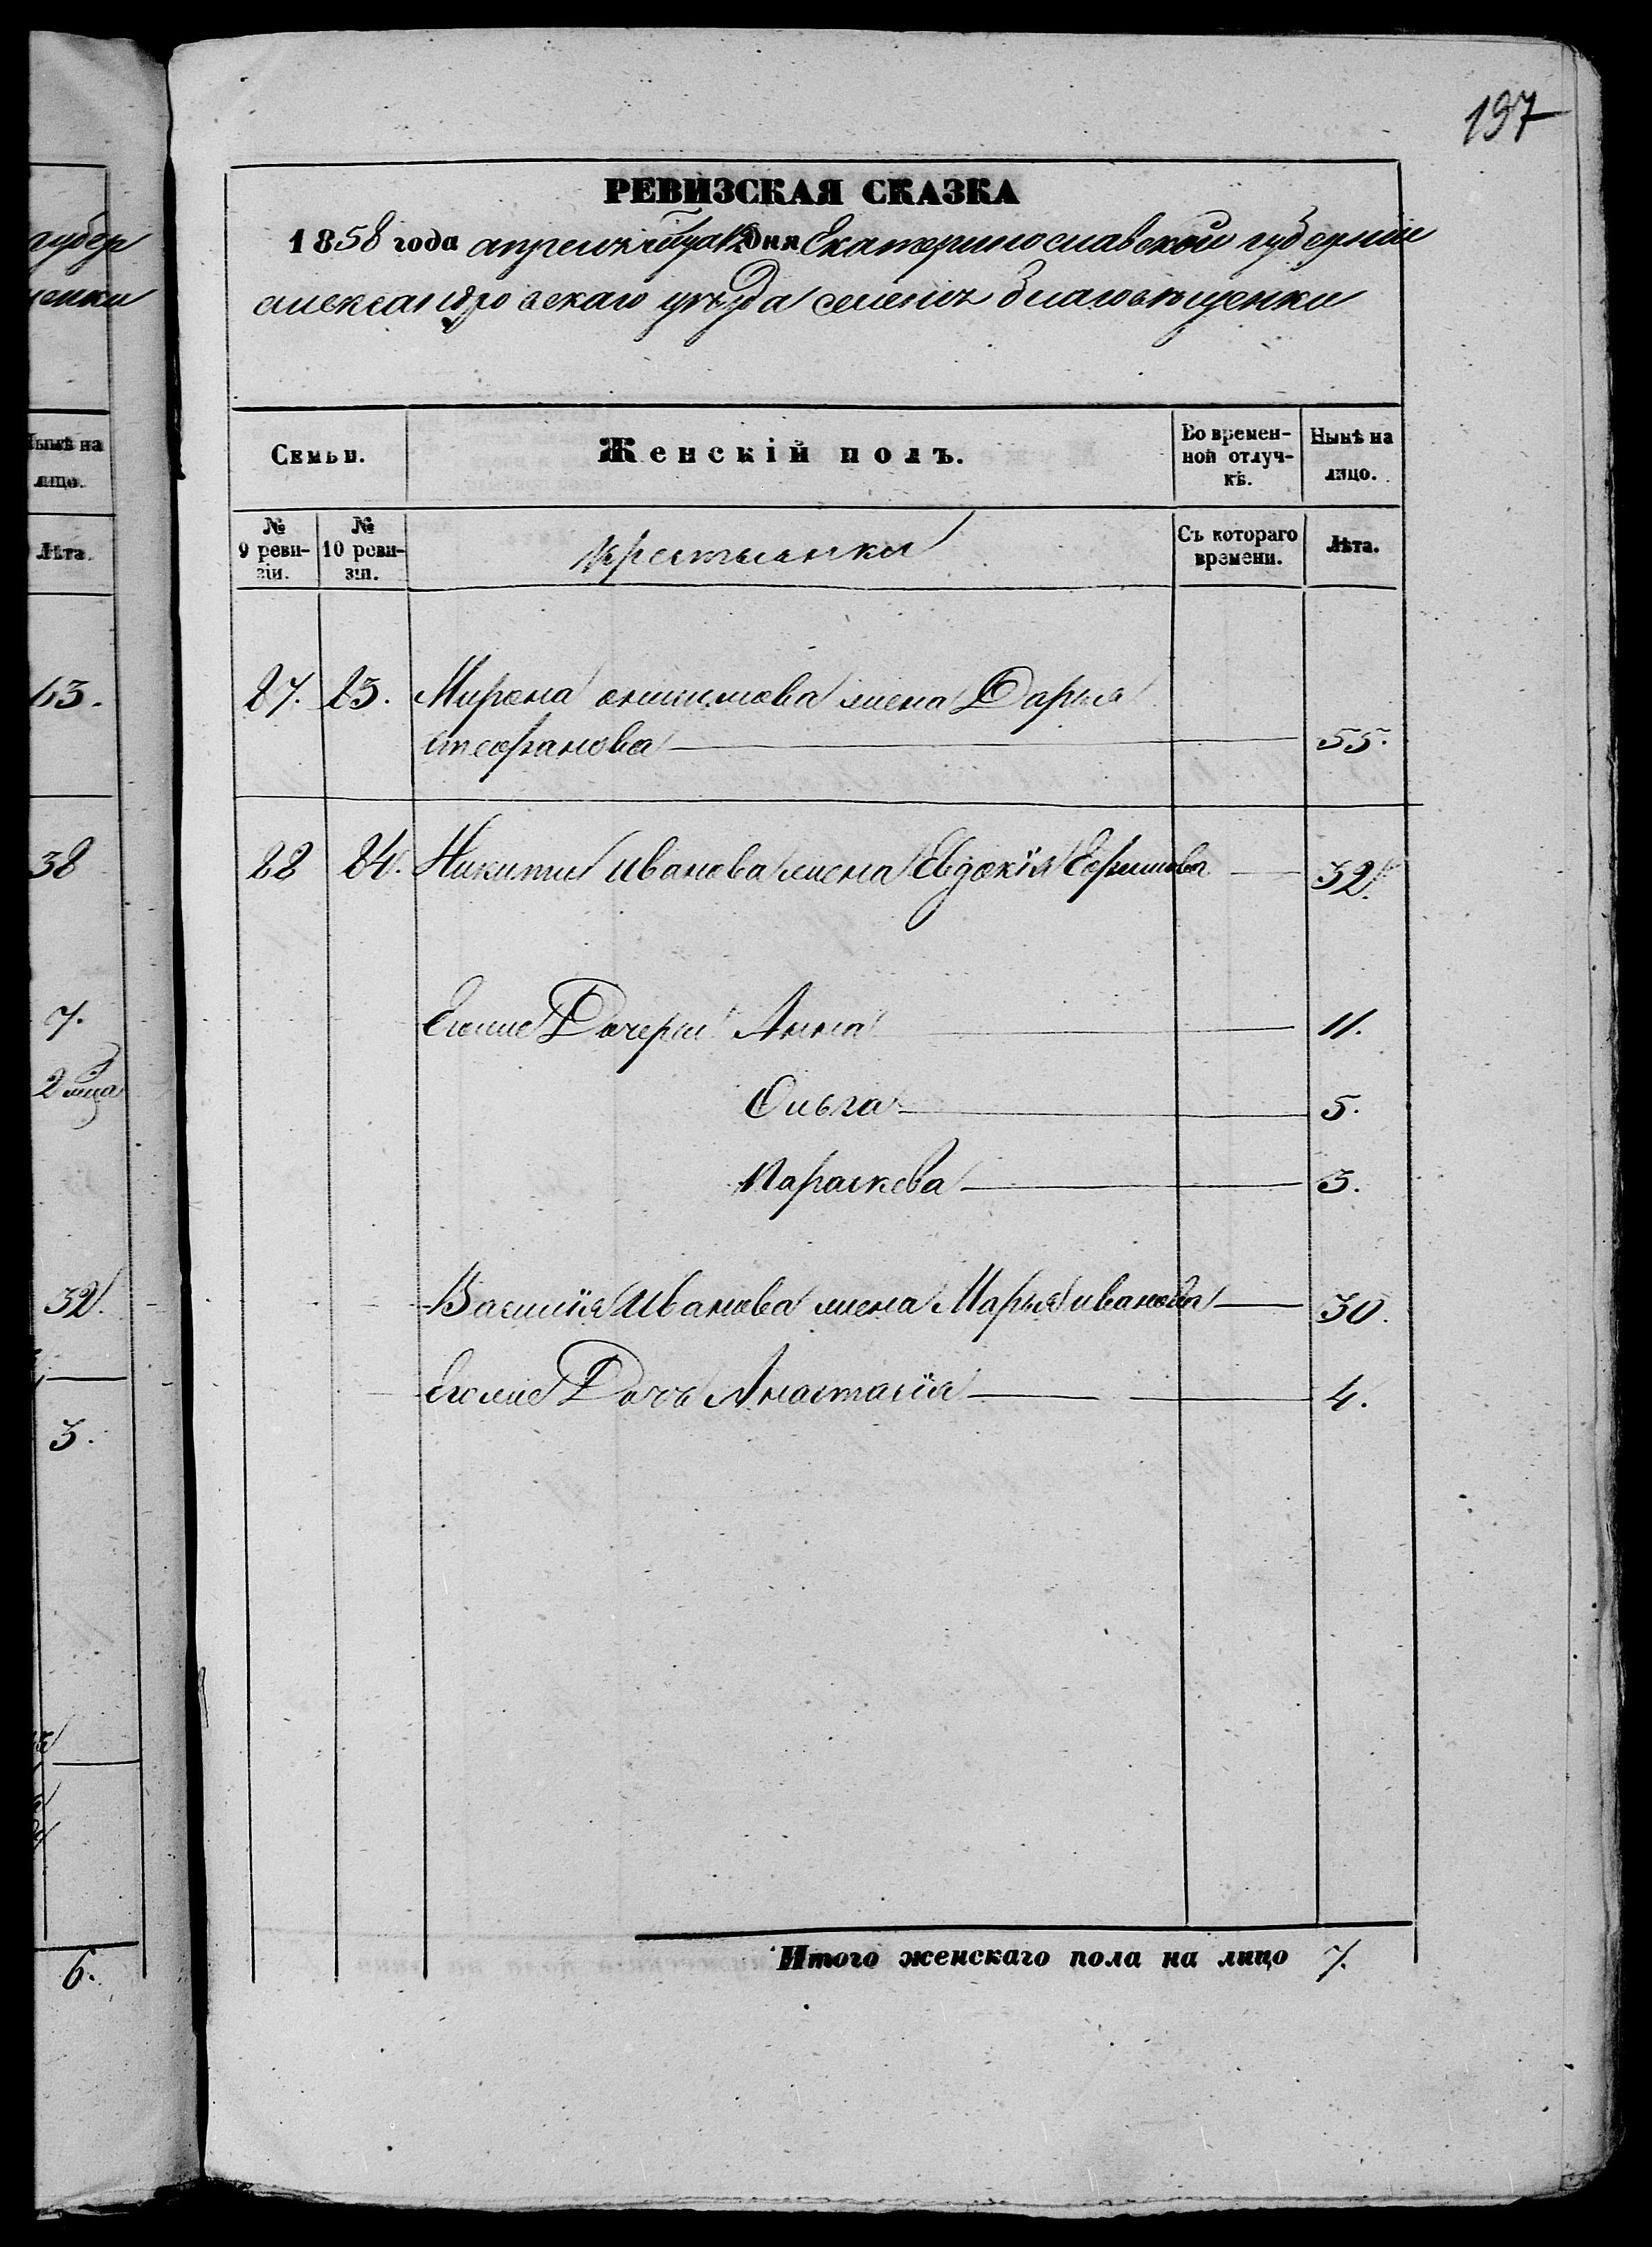 губер
ценки
Нынѣ на
лицо.
Лѣта.
38
7.
2 м͠ца
32.
3.
6.
197
РЕВИЗСКАЯ СКАЗКА
1858 года апреля дня Екатеринославской губернии
александровскаго уѣзда селения благовѣщенки
Семьи.
Женскій полъ.
Во времен-
ной отлуч-
кѣ.
Нынѣ на
лицо.
№
9 реви-
зіи.
№
10 реви-
зіи.
крестьянки
Съ котораго
времени.
Лѣта.
27. 23. Мирона онисимова жена Дарья
стефанова 55.
28 24. Никиты иванова жена Евдокія Ефимова 32.
Егоже Дочери Анна 11.
Ольга 5.
Параскева 3.
Василія Иванова жена Марья иванова 30.
Егоже Дочь Анастасія 4.
Итого женскаго пола на лицо 7.